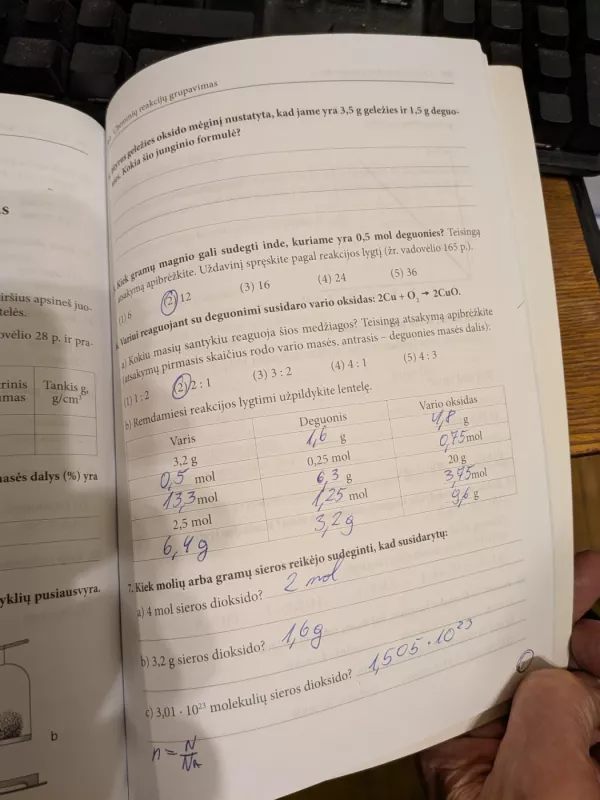 Cheminių reakcijų grupavimas
geležies oksido mėginį nustatyta, kad jame yra 3,5 g geležies ir 1,5 g deguo-
nies. Kokia šio junginio formulė?
Kiek gramų magnio gali sudegti inde, kuriame yra 0,5 mol deguonies? Teisingą
atsakymą apibrėžkite. Uždavinį spręskite pagal reakcijos lygtį (žr. vadovėlio 165 p.).
(1) 6 (2) 12 (3) 16 (4) 24 (5) 36
Variui reaguojant su deguonimi susidaro vario oksidas: 2Cu + O₂ → 2CuO.
a) Kokiu masių santykiu reaguoja šios medžiagos? Teisingą atsakymą apibrėžkite
(atsakymų pirmasis skaičius rodo vario masės, antrasis – deguonies masės dalis):
(1) 1 : 2 (2) 2 : 1 (3) 3 : 2 (4) 4 : 1 (5) 4 : 3
b) Remdamiesi reakcijos lygtimi užpildykite lentelę.
Varis Deguonis Vario oksidas
3,2 g 1,6 g 4,8 g
0,5 mol 0,25 mol 0,75 mol
13,3 mol 6,3 g 20 g
2,5 mol 1,25 mol 3,75 mol
6,4 g 3,2 g 9,6 g
7. Kiek molių arba gramų sieros reikėjo sudeginti, kad susidarytų:
a) 4 mol sieros dioksido? 2 mol
b) 3,2 g sieros dioksido? 1,6 g
c) 3,01 · 10²³ molekulių sieros dioksido? 1,505 · 10²³
n = N/Nₐ
s
viršius apsineš juo-
telės.
ovėlio 28 p. ir pra-
rinis Tankis g,
mas g/cm³
asės dalys (%) yra
yklių pusiausvyra.
b